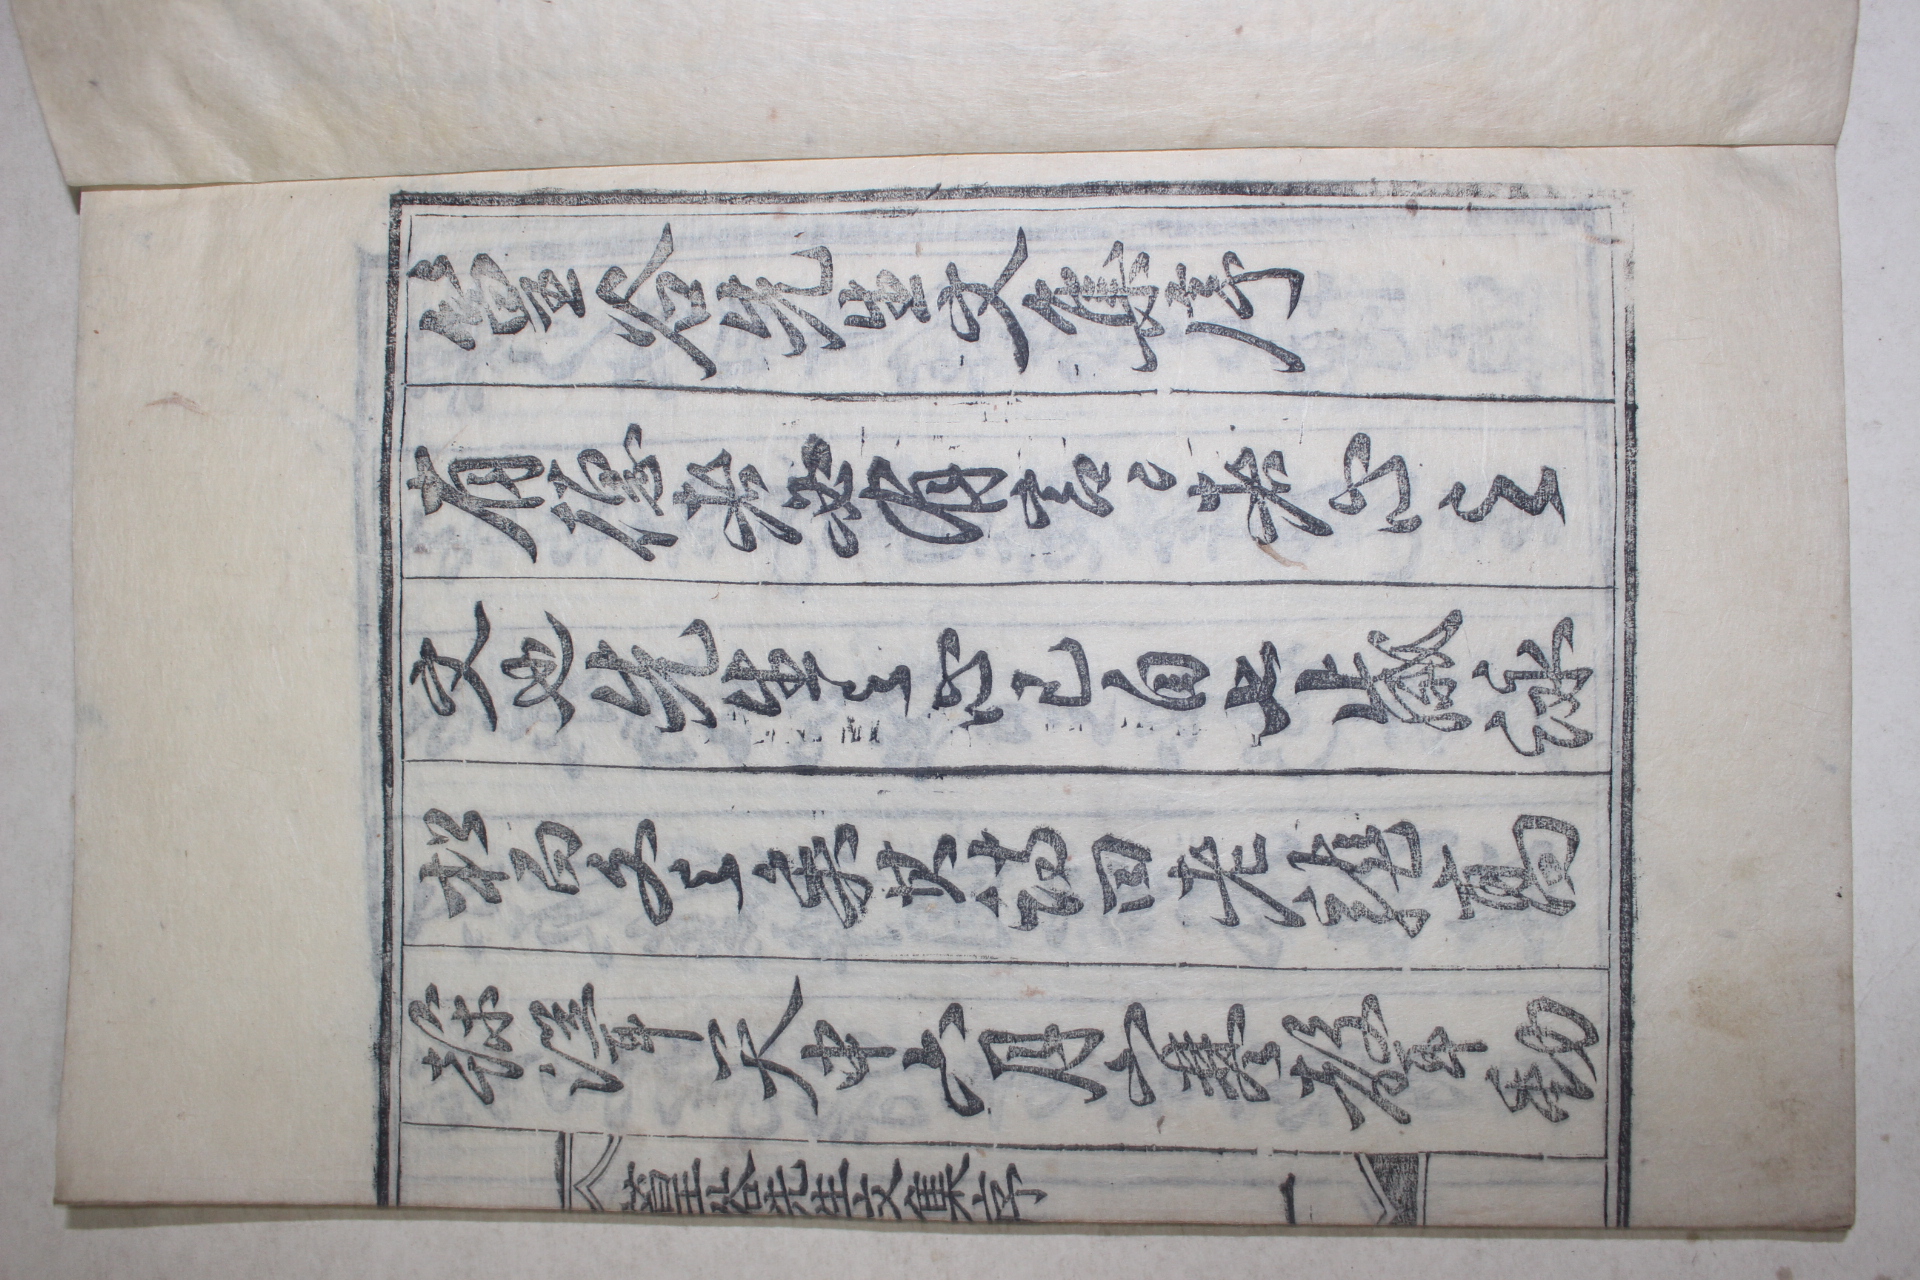 篁谷先生文集序
有德者必有言〻者心之
文也先生之心已自七歲詠
松而文之矣其詩曰老龍高
幹聳天中六月寒聲動
篁谷先生文集序 一